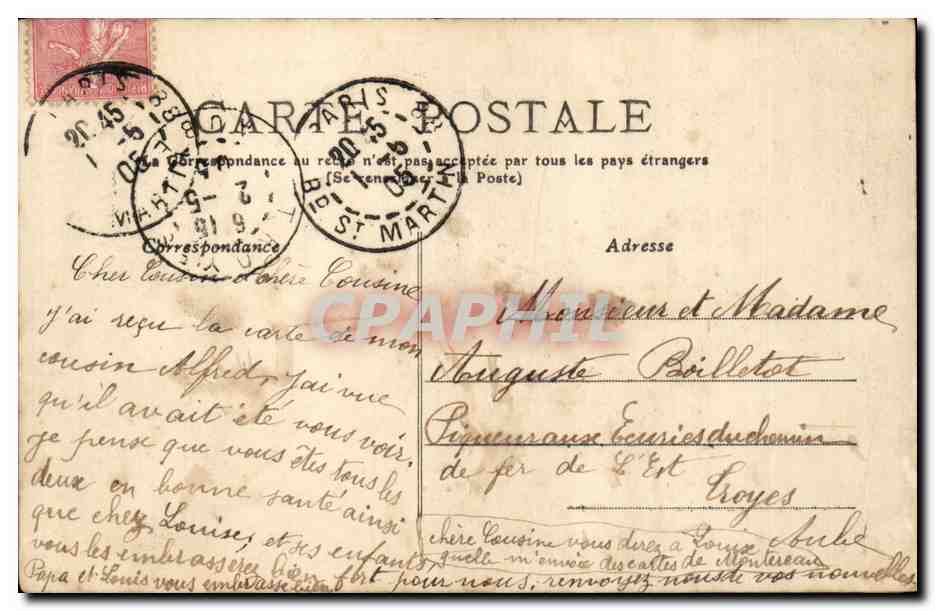 CARTE POSTALE
La Correspondance au recto n'est pas acceptée par tous les pays étrangers
(Se renseigner à la Poste)
PARIS
20 45
1-5
05
Bd ST MARTIN
Correspondance
Adresse
Cher Cousin et chère Cousine
J'ai reçu la carte de mon
cousin Alfred, j'ai vue
qu'il avait été vous voir.
je pense que vous êtes tous les
deux en bonne santé ainsi
que chez Louise, et ses enfants,
vous les embrasserez bien fort pour nous, renvoyez nous de vos nouvelles
Papa et Louis vous embrasse bien
Monsieur et Madame
Auguste Boilletot
Piqueur aux Ecuries du chemin
de fer de L'Est
Troyes
Aube
chère Cousine vous direz à Louise
quelle m'envoie des cartes de Montereau
CPAPHIL